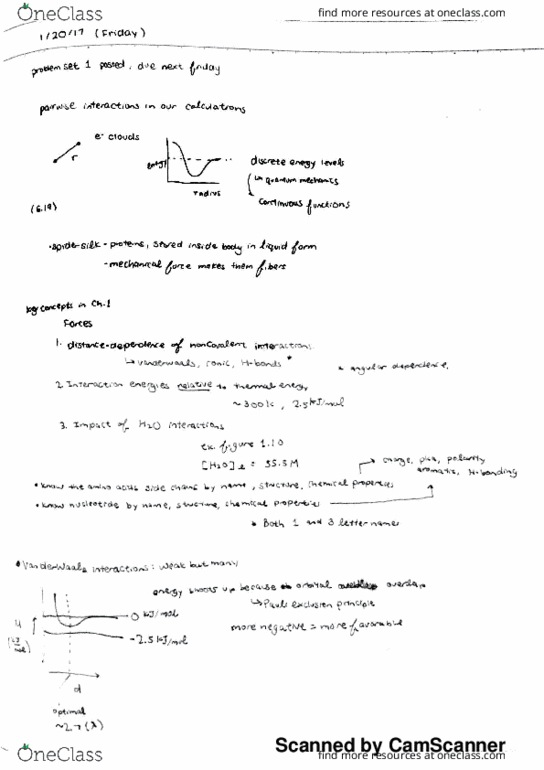 OneClass
find more resources at oneclass.com
1/20/17 (Friday)
problem set 1 posted, due next friday
pairwise interactions in our calculations
e⁻ clouds
r
energy
radius
discrete energy levels
↳ quantum mechanics
continuous functions
(6.19)
•spider silk - proteins, stored inside body in liquid form
-mechanical force makes them fibers
key concepts in Ch.1
Forces
1. distance-dependence of noncovalent interactions
↳ vanderwaals, ionic, H-bonds *
* angular dependence
2. Interaction energies relative to thermal energy
~300K, 2.5 kJ/mol
3. Impact of H2O interactions
ex. figure 1.10
[H2O]ℓ = 55.5M
charge, pka, polarity
aromatic, H-bonding
•know the amino acids side chains by name, structure, chemical properties
•know nucleotide by name, structure, chemical properties
Both 1 and 3 letter names
•VanderWaals interactions: weak but many
energy shoots up because orbital overlap
↳ Pauli exclusion principle
more negative = more favorable
U
(kJ/mol)
0 kJ/mol
-2.5 kJ/mol
d
optimal
Scanned by CamScanner
OneClass
find more resources at oneclass.com